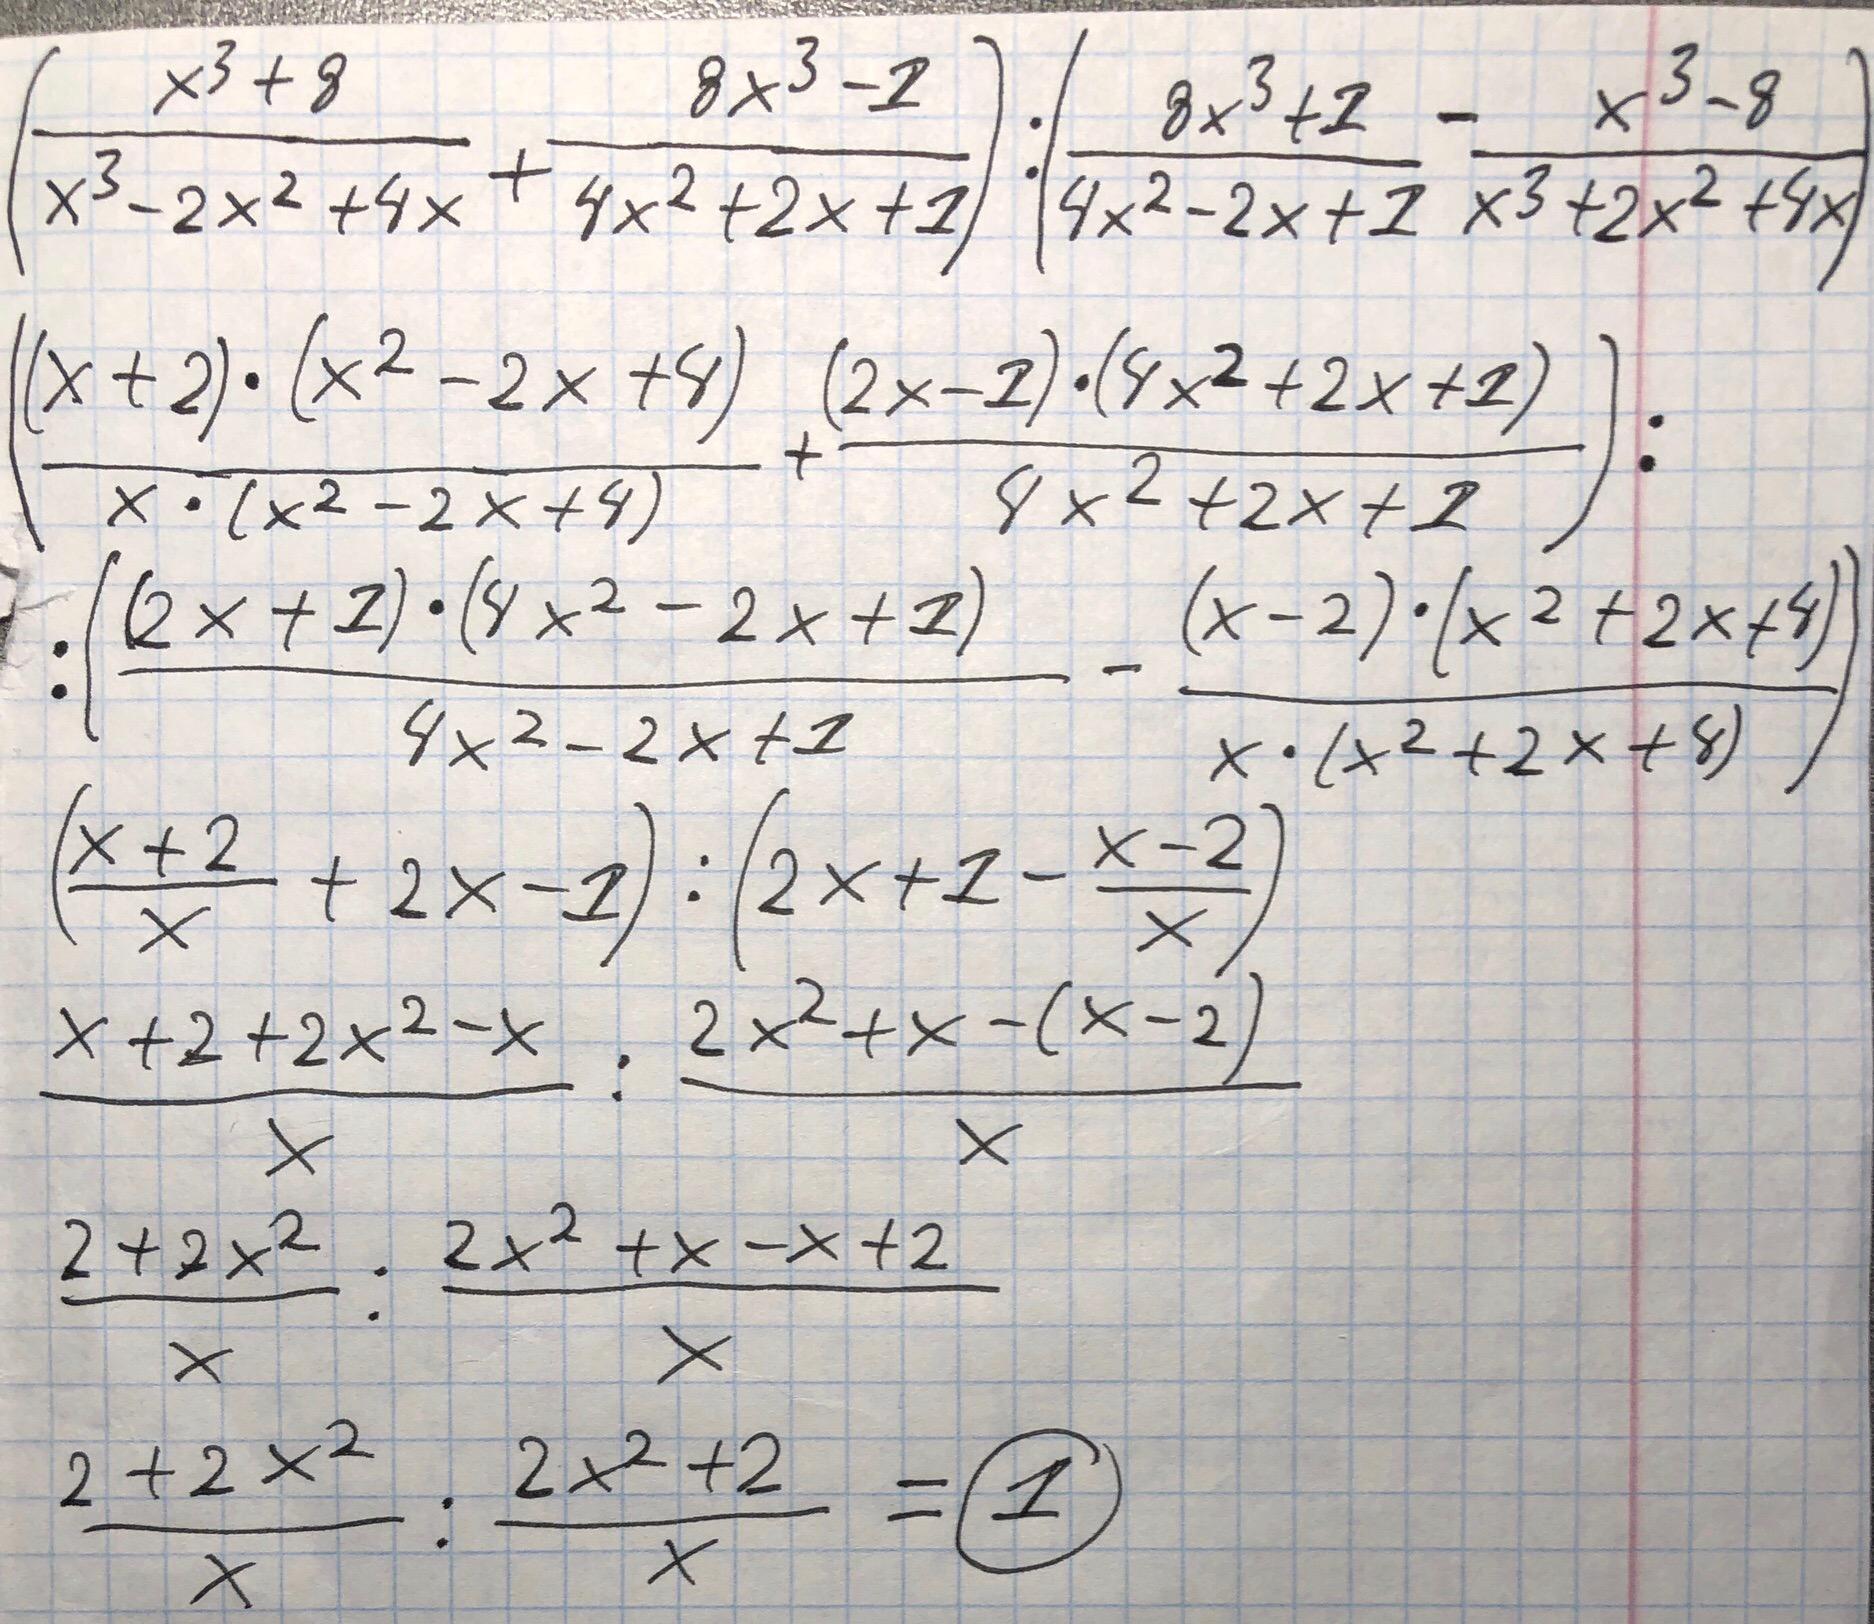 (x³+8)/(x³-2x²+4x) + (8x³-1)/(4x²+2x+1)) : ((8x³+1)/(4x²-2x+1) - (x³-8)/(x³+2x²+4x))
(((x+2)·(x²-2x+4))/(x·(x²-2x+4)) + ((2x-1)·(4x²+2x+1))/(4x²+2x+1)) :
: (((2x+1)·(4x²-2x+1))/(4x²-2x+1) - ((x-2)·(x²+2x+4))/(x·(x²+2x+4)))
((x+2)/x + 2x-1) : (2x+1 - (x-2)/x)
(x+2+2x²-x)/x : (2x²+x-(x-2))/x
(2+2x²)/x : (2x²+x-x+2)/x
(2+2x²)/x : (2x²+2)/x = 1